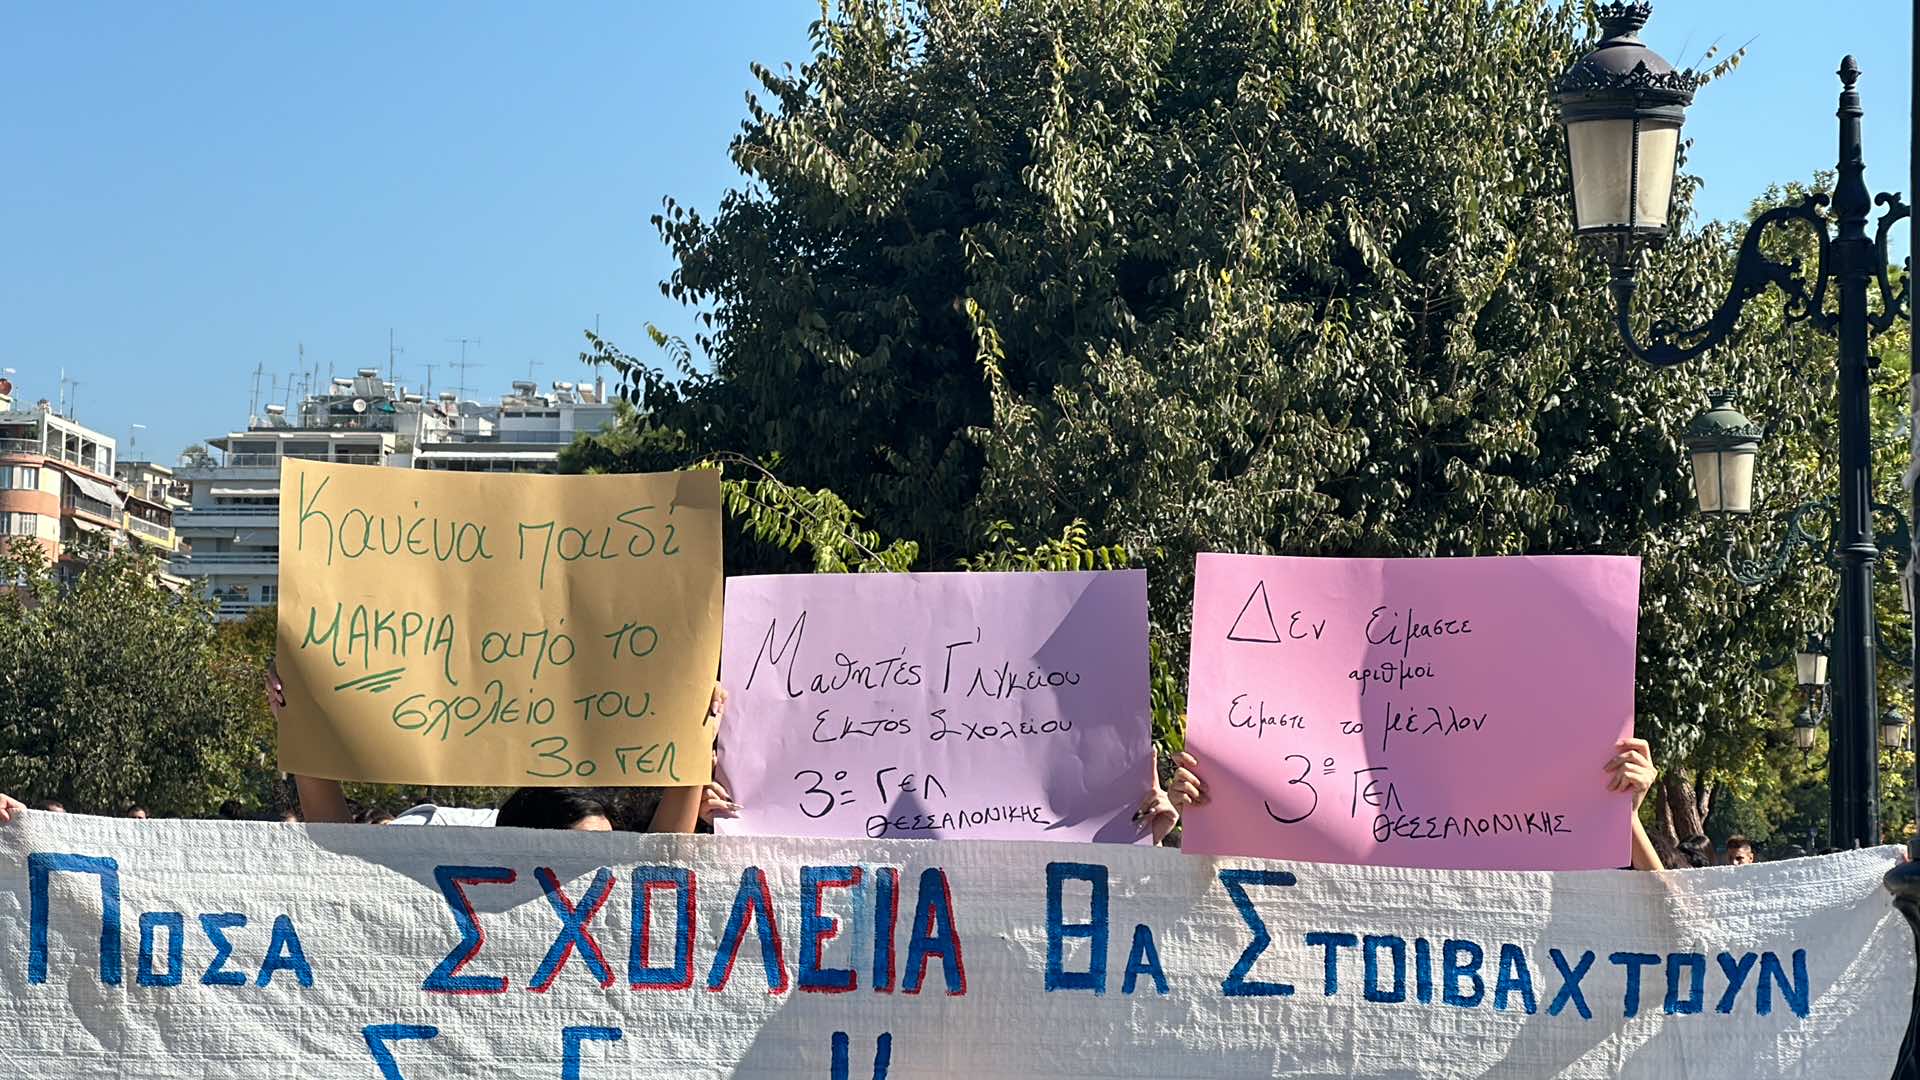 Κανένα παιδί
ΜΑΚΡΙΑ από το
σχολείο του.
3ο ΓΕΛ
Μαθητές Γ' Λυκείου
Εκτός Σχολείου
3º ΓΕΛ
ΘΕΣΣΑΛΟΝΙΚΗΣ
Δεν Είμαστε
αριθμοί
Είμαστε το μέλλον
3º ΓΕΛ
ΘΕΣΣΑΛΟΝΙΚΗΣ
ΠΟΣΑ ΣΧΟΛΕΙΑ ΘΑ ΣΤΟΙΒΑΧΤΟΥΝ